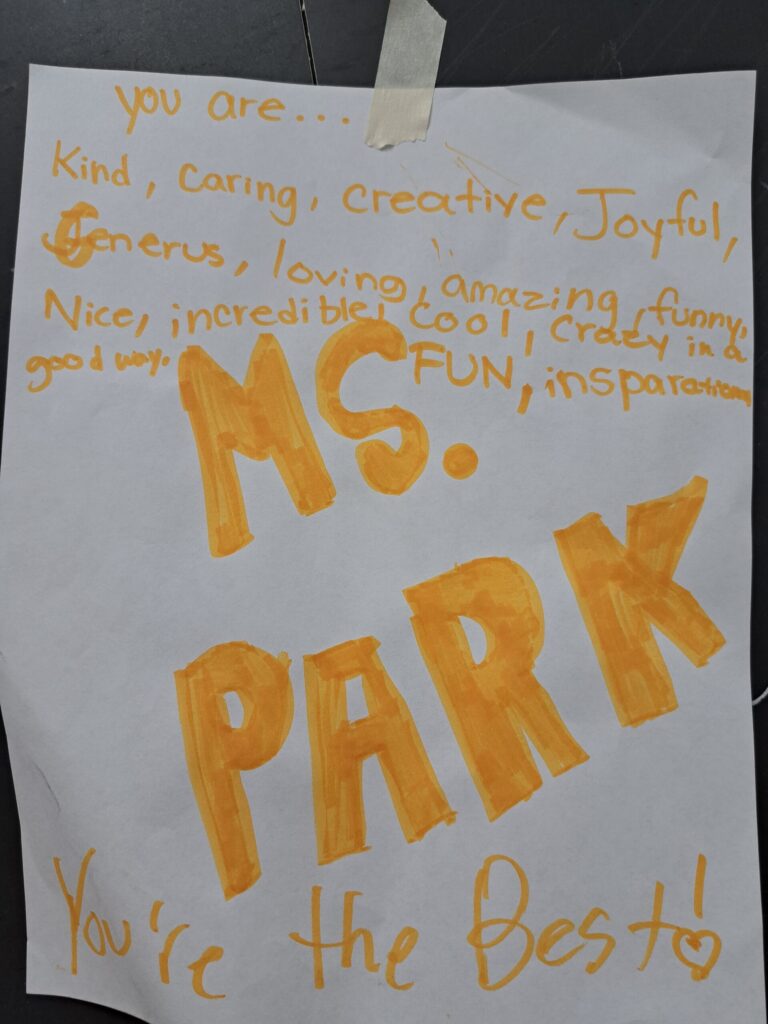 you are...
Kind, caring, creative, Joyful,
Generus, loving, amazing, funny,
Nice, incredible, cool, crazy in a
good way. FUN, insparation
MS.
PARK
You're the Best!